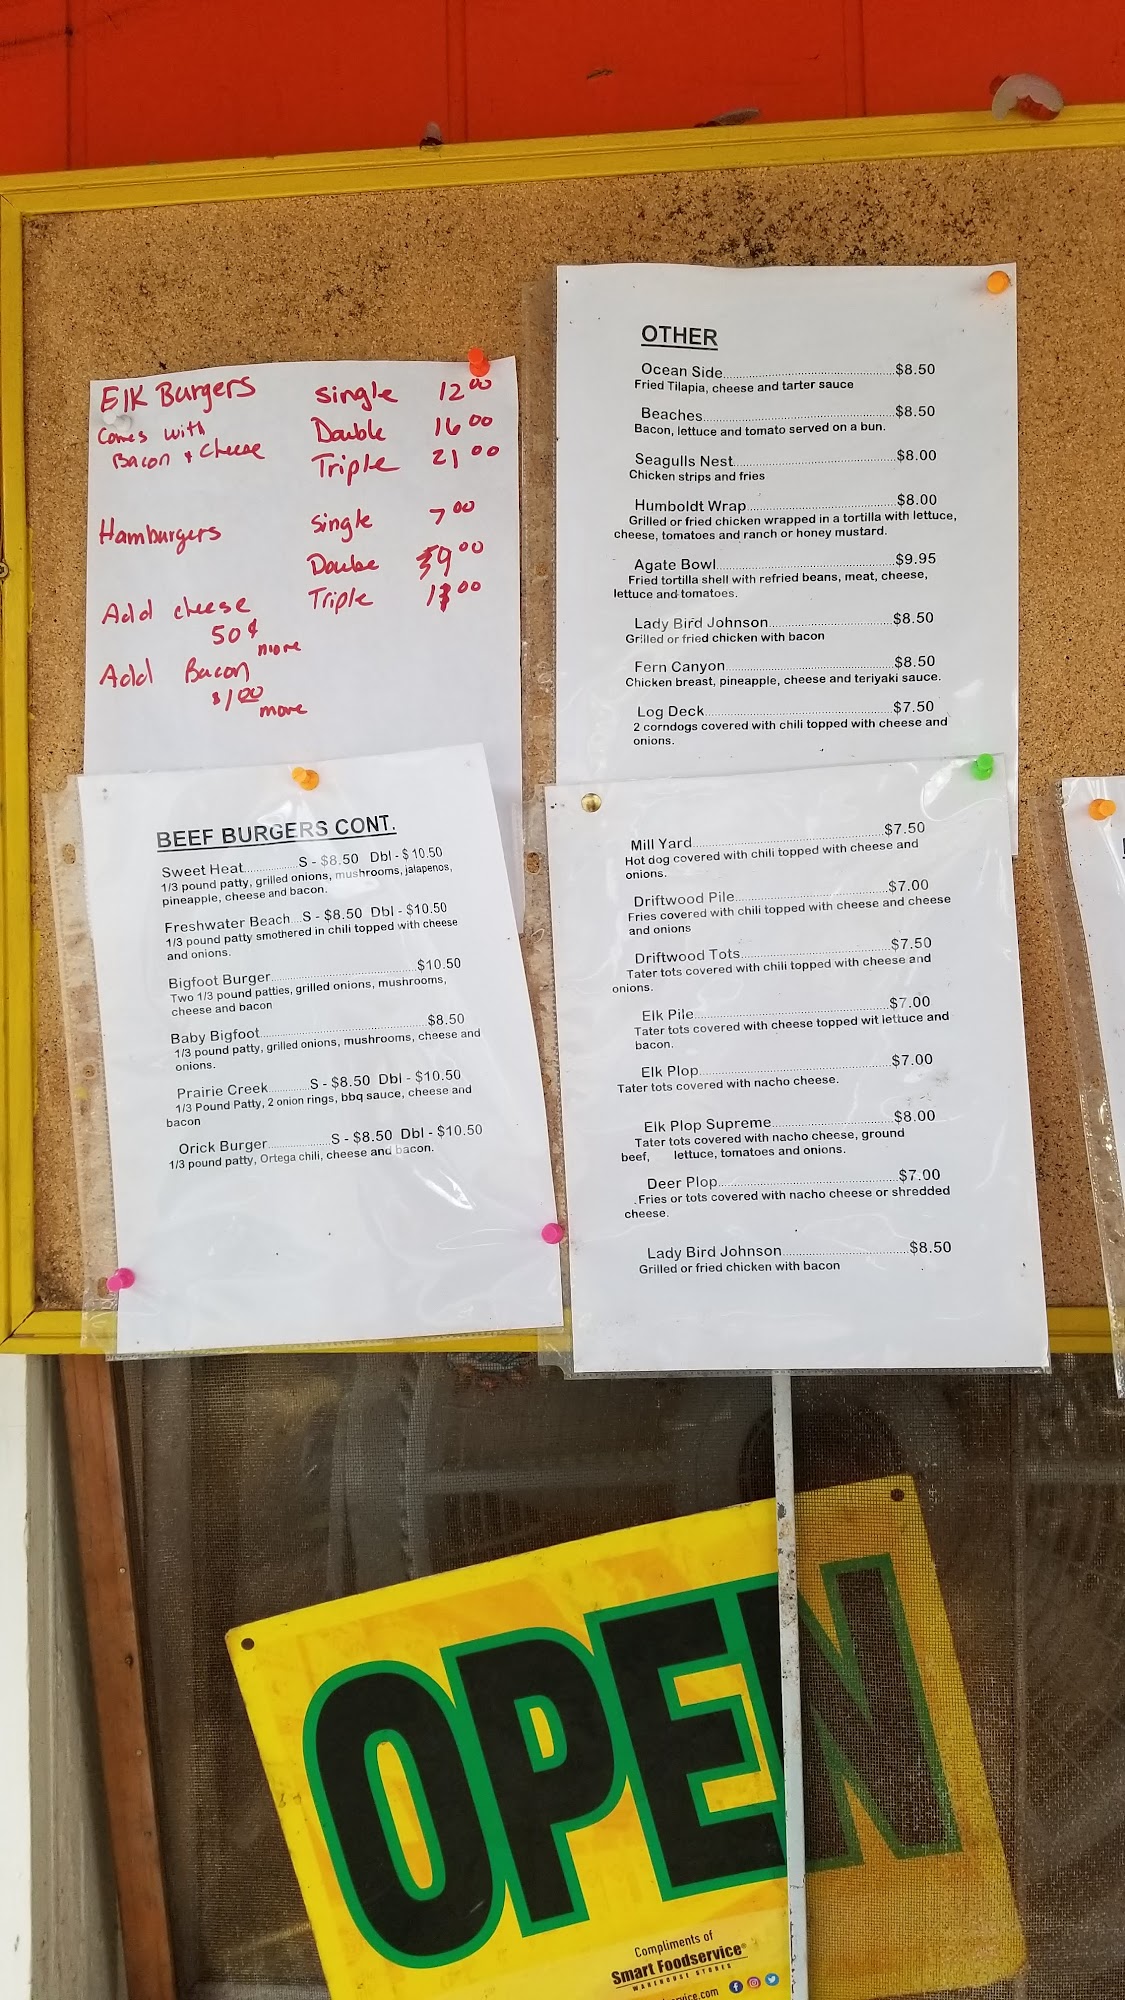 Elk Burgers single 12 00
Comes with Double 16 00
Bacon & Cheese Triple 21 00
Hamburgers single 7 00
Double 9 00
Add cheese Triple 00
50¢
more
Add Bacon
$1.00
more
BEEF BURGERS CONT.
Sweet Heat..............S - $8.50 Dbl - $10.50
1/3 pound patty, grilled onions, mushrooms, jalapenos,
pineapple, cheese and bacon.
Freshwater Beach...S - $8.50 Dbl - $10.50
1/3 pound patty smothered in chili topped with cheese
and onions.
Bigfoot Burger..............................$10.50
Two 1/3 pound patties, grilled onions, mushrooms,
cheese and bacon
Baby Bigfoot..............................$8.50
1/3 pound patty, grilled onions, mushrooms, cheese and
onions.
Prairie Creek..........S - $8.50 Dbl - $10.50
1/3 Pound Patty, 2 onion rings, bbq sauce, cheese and
bacon
Orick Burger...............S - $8.50 Dbl - $10.50
1/3 pound patty, Ortega chili, cheese and bacon.
OTHER
Ocean Side..............................$8.50
Fried Tilapia, cheese and tarter sauce
Beaches..............................$8.50
Bacon, lettuce and tomato served on a bun.
Seagulls Nest..............................$8.00
Chicken strips and fries
Humboldt Wrap..............................$8.00
Grilled or fried chicken wrapped in a tortilla with lettuce,
cheese, tomatoes and ranch or honey mustard.
Agate Bowl..............................$9.95
Fried tortilla shell with refried beans, meat, cheese,
lettuce and tomatoes.
Lady Bird Johnson..............................$8.50
Grilled or fried chicken with bacon
Fern Canyon..............................$8.50
Chicken breast, pineapple, cheese and teriyaki sauce.
Log Deck..............................$7.50
2 corndogs covered with chili topped with cheese and
onions.
Mill Yard..............................$7.50
Hot dog covered with chili topped with cheese and
onions.
Driftwood Pile..............................$7.00
Fries covered with chili topped with cheese and cheese
and onions
Driftwood Tots..............................$7.50
Tater tots covered with chili topped with cheese and
onions.
Elk Pile..............................$7.00
Tater tots covered with cheese topped wit lettuce and
bacon.
Elk Plop..............................$7.00
Tater tots covered with nacho cheese.
Elk Plop Supreme..............................$8.00
Tater tots covered with nacho cheese, ground
beef, lettuce, tomatoes and onions.
Deer Plop..............................$7.00
Fries or tots covered with nacho cheese or shredded
cheese.
Lady Bird Johnson..............................$8.50
Grilled or fried chicken with bacon
OPEN
Compliments of
Smart Foodservice®
WAREHOUSE STORES